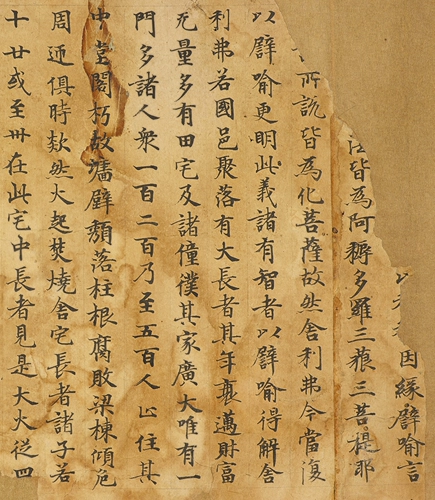 因緣譬喻言
皆為阿耨多羅三藐三菩提耶
所說皆為化菩薩故然舍利弗今當復
以譬喻更明此義諸有智者以譬喻得解舍
利弗若國邑聚落有大長者其年衰邁財富
无量多有田宅及諸僮僕其家廣大唯有一
門多諸人眾一百二百乃至五百人止住其
中堂閣朽故墻壁頹落柱根腐敗梁棟傾危
周迊俱時欻然火起焚燒舍宅長者諸子若
十廿或至卅在此宅中長者見是大火從四